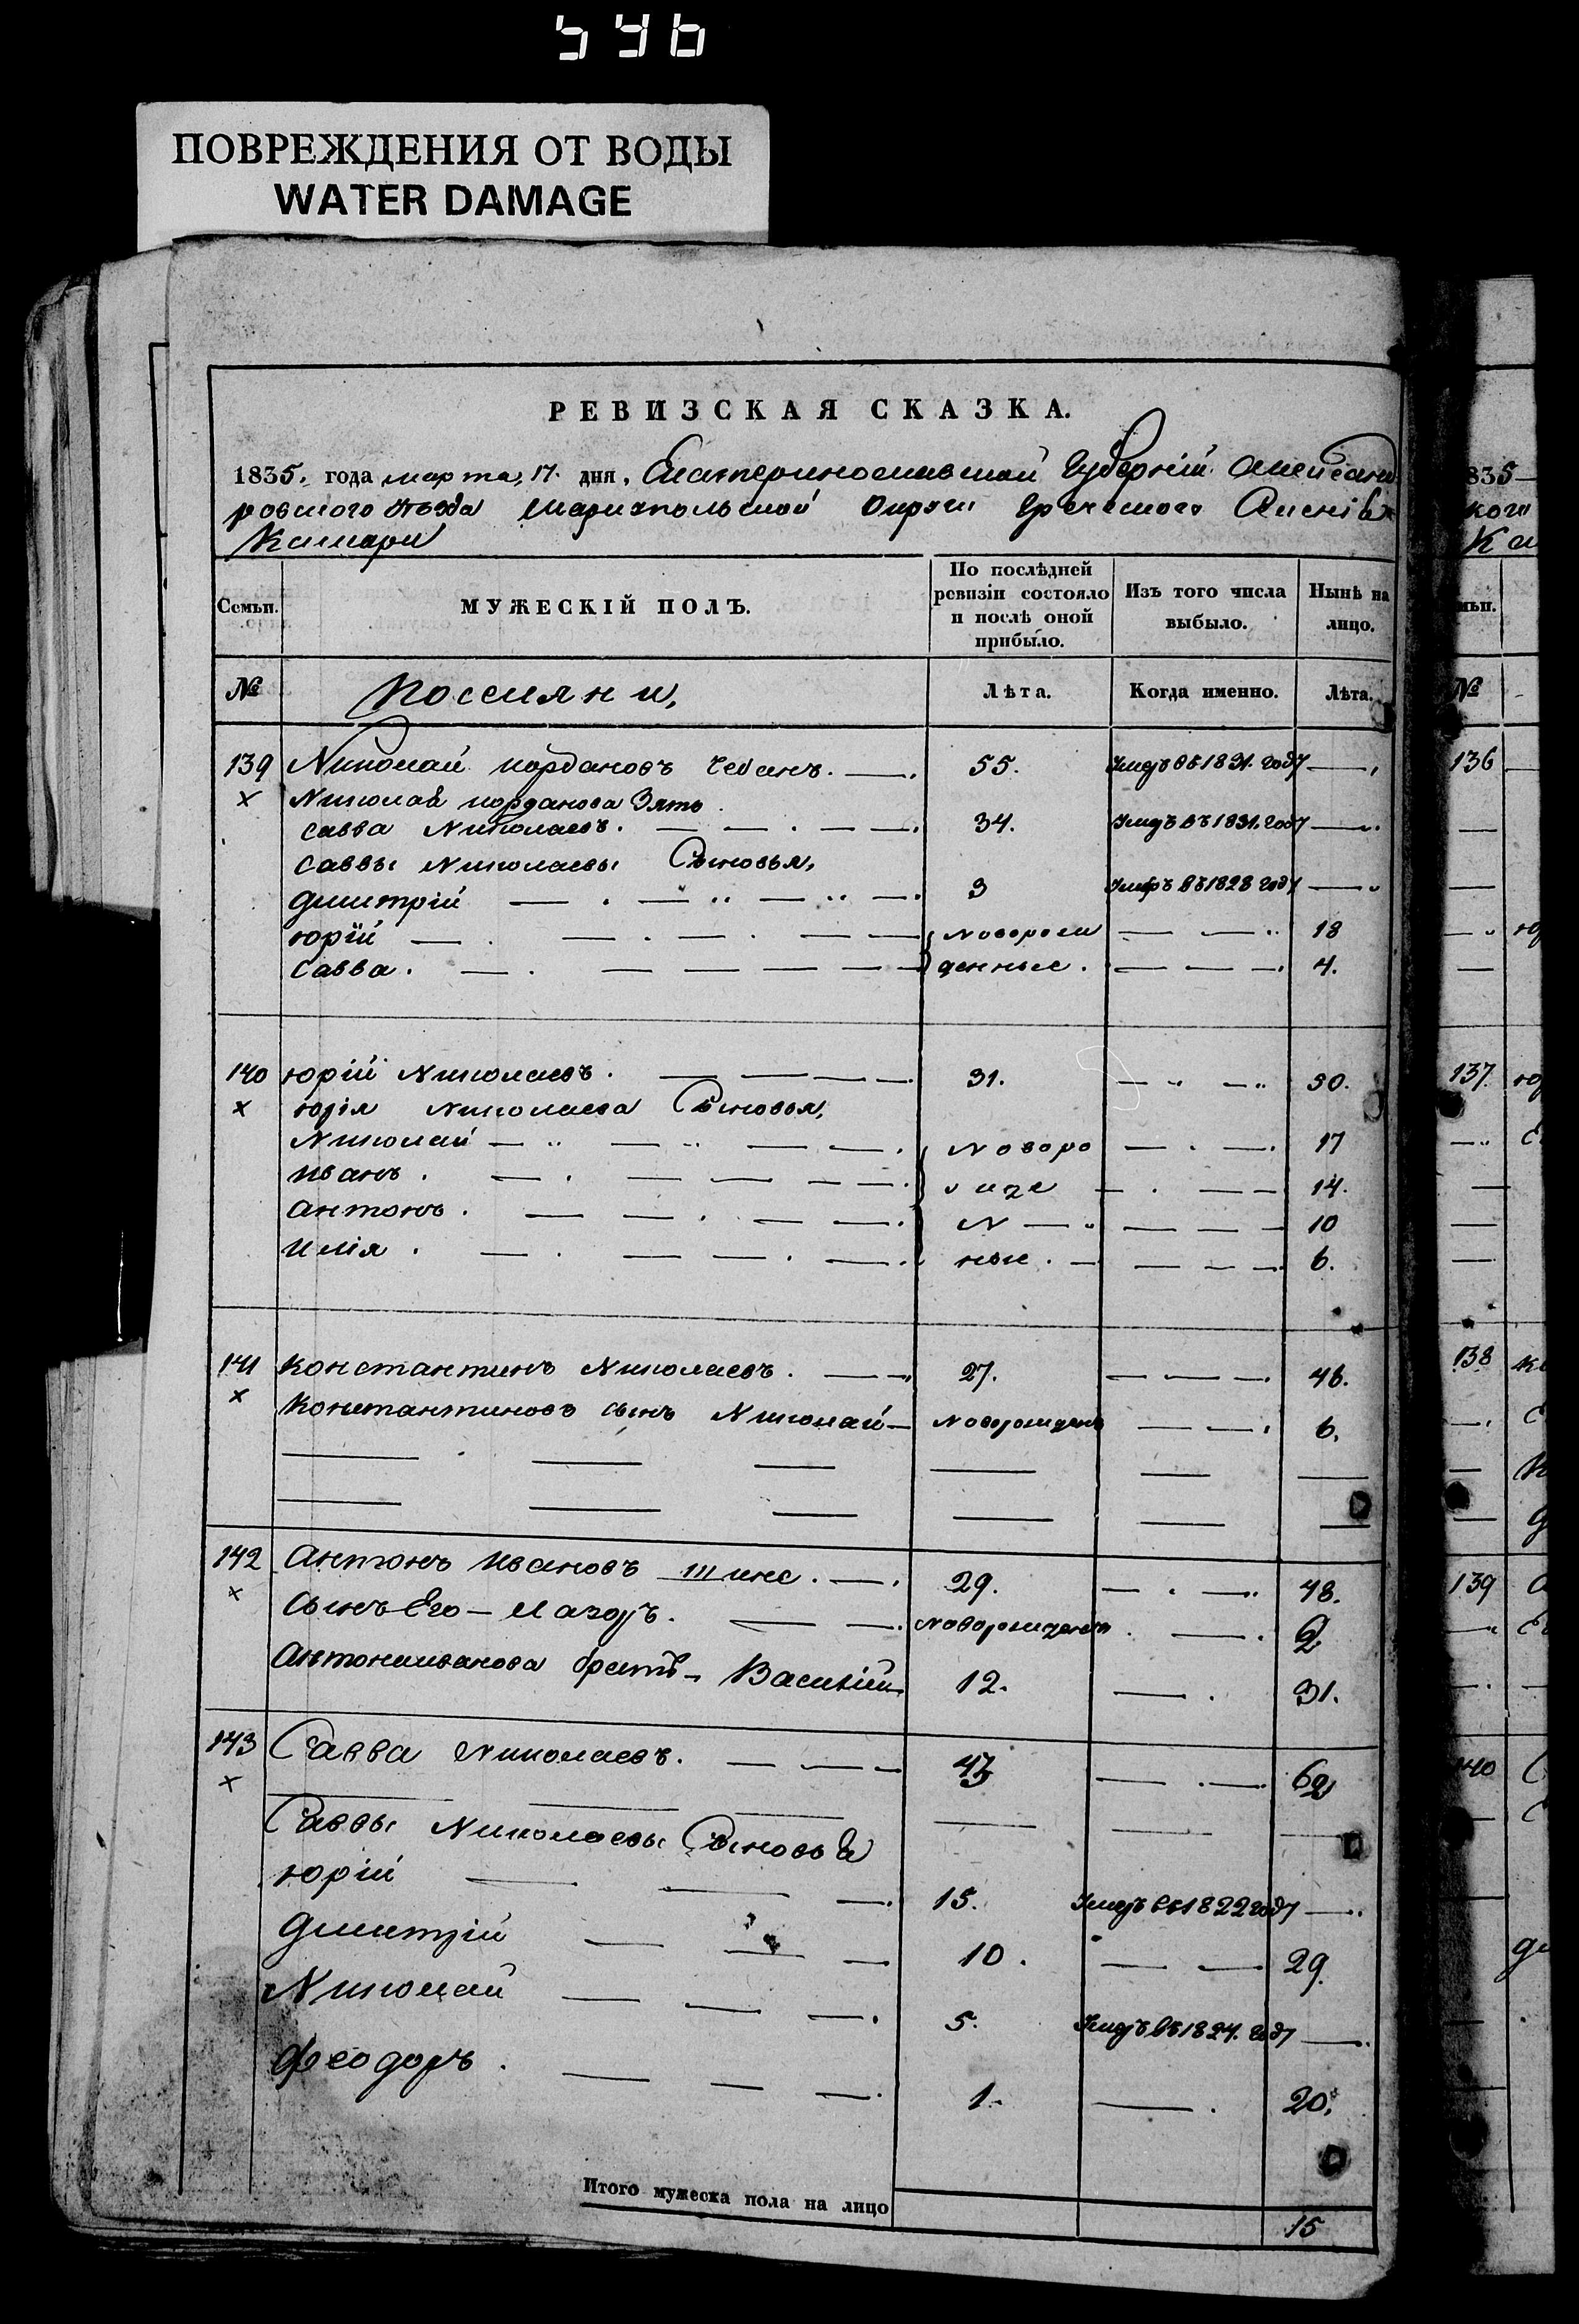 546
ПОВРЕЖДЕНИЯ ОТ ВОДЫ
WATER DAMAGE
РЕВИЗСКАЯ СКАЗКА.
1835. года марта, 17. дня, Екатеринославской Губерніи Александ
ровского Уезда Мариупольской Округи Греческого Селенія
Камари
Семьи.
МУЖЕСКІЙ ПОЛЪ.
По послѣдней ревизіи состояло и послѣ оной прибыло.
Изъ того числа выбыло.
Нынѣ на лицо.
№
Поселяни,
Лѣта.
Когда именно.
Лѣта.
139 Николай иордановъ Чебанъ. 55. Умеръ въ 1831. году
x Николая иорданова Зять
савва Николаевъ. 34. Умеръ въ 1831. году
саввы Николаевы Сыновья,
дмитрій 3 Умеръ въ 1828 году
юрій Наворож 18
савва. денные. 4.
140 юрій Николаевъ. 31. 50.
x юрія Николаева Сыновья,
Николай Новоро 17
иванъ. 14.
антонъ. 10
илія. ные. 6.
141 константинъ Николаевъ. 27. 46.
x Константиновъ сынъ Николай Новорожденъ 6.
142 антонъ ивановъ 29. 48.
x сынъ Его Лазоръ. Наворожденъ 2
антонаиванова братъ Василій 12. 31.
143 Савва Николаевъ. 43 62
x
Саввы Николаевы Сыновья
юрій 15. Умеръ въ 1822 году
дмитрій 10. 29.
Николай 5. Умеръ въ 1824. году
феодоръ. 1. 20.
Итого мужеска пола на лицо 15
835
кого
Ка
мьи.
№
136
137. юр
138
139
140